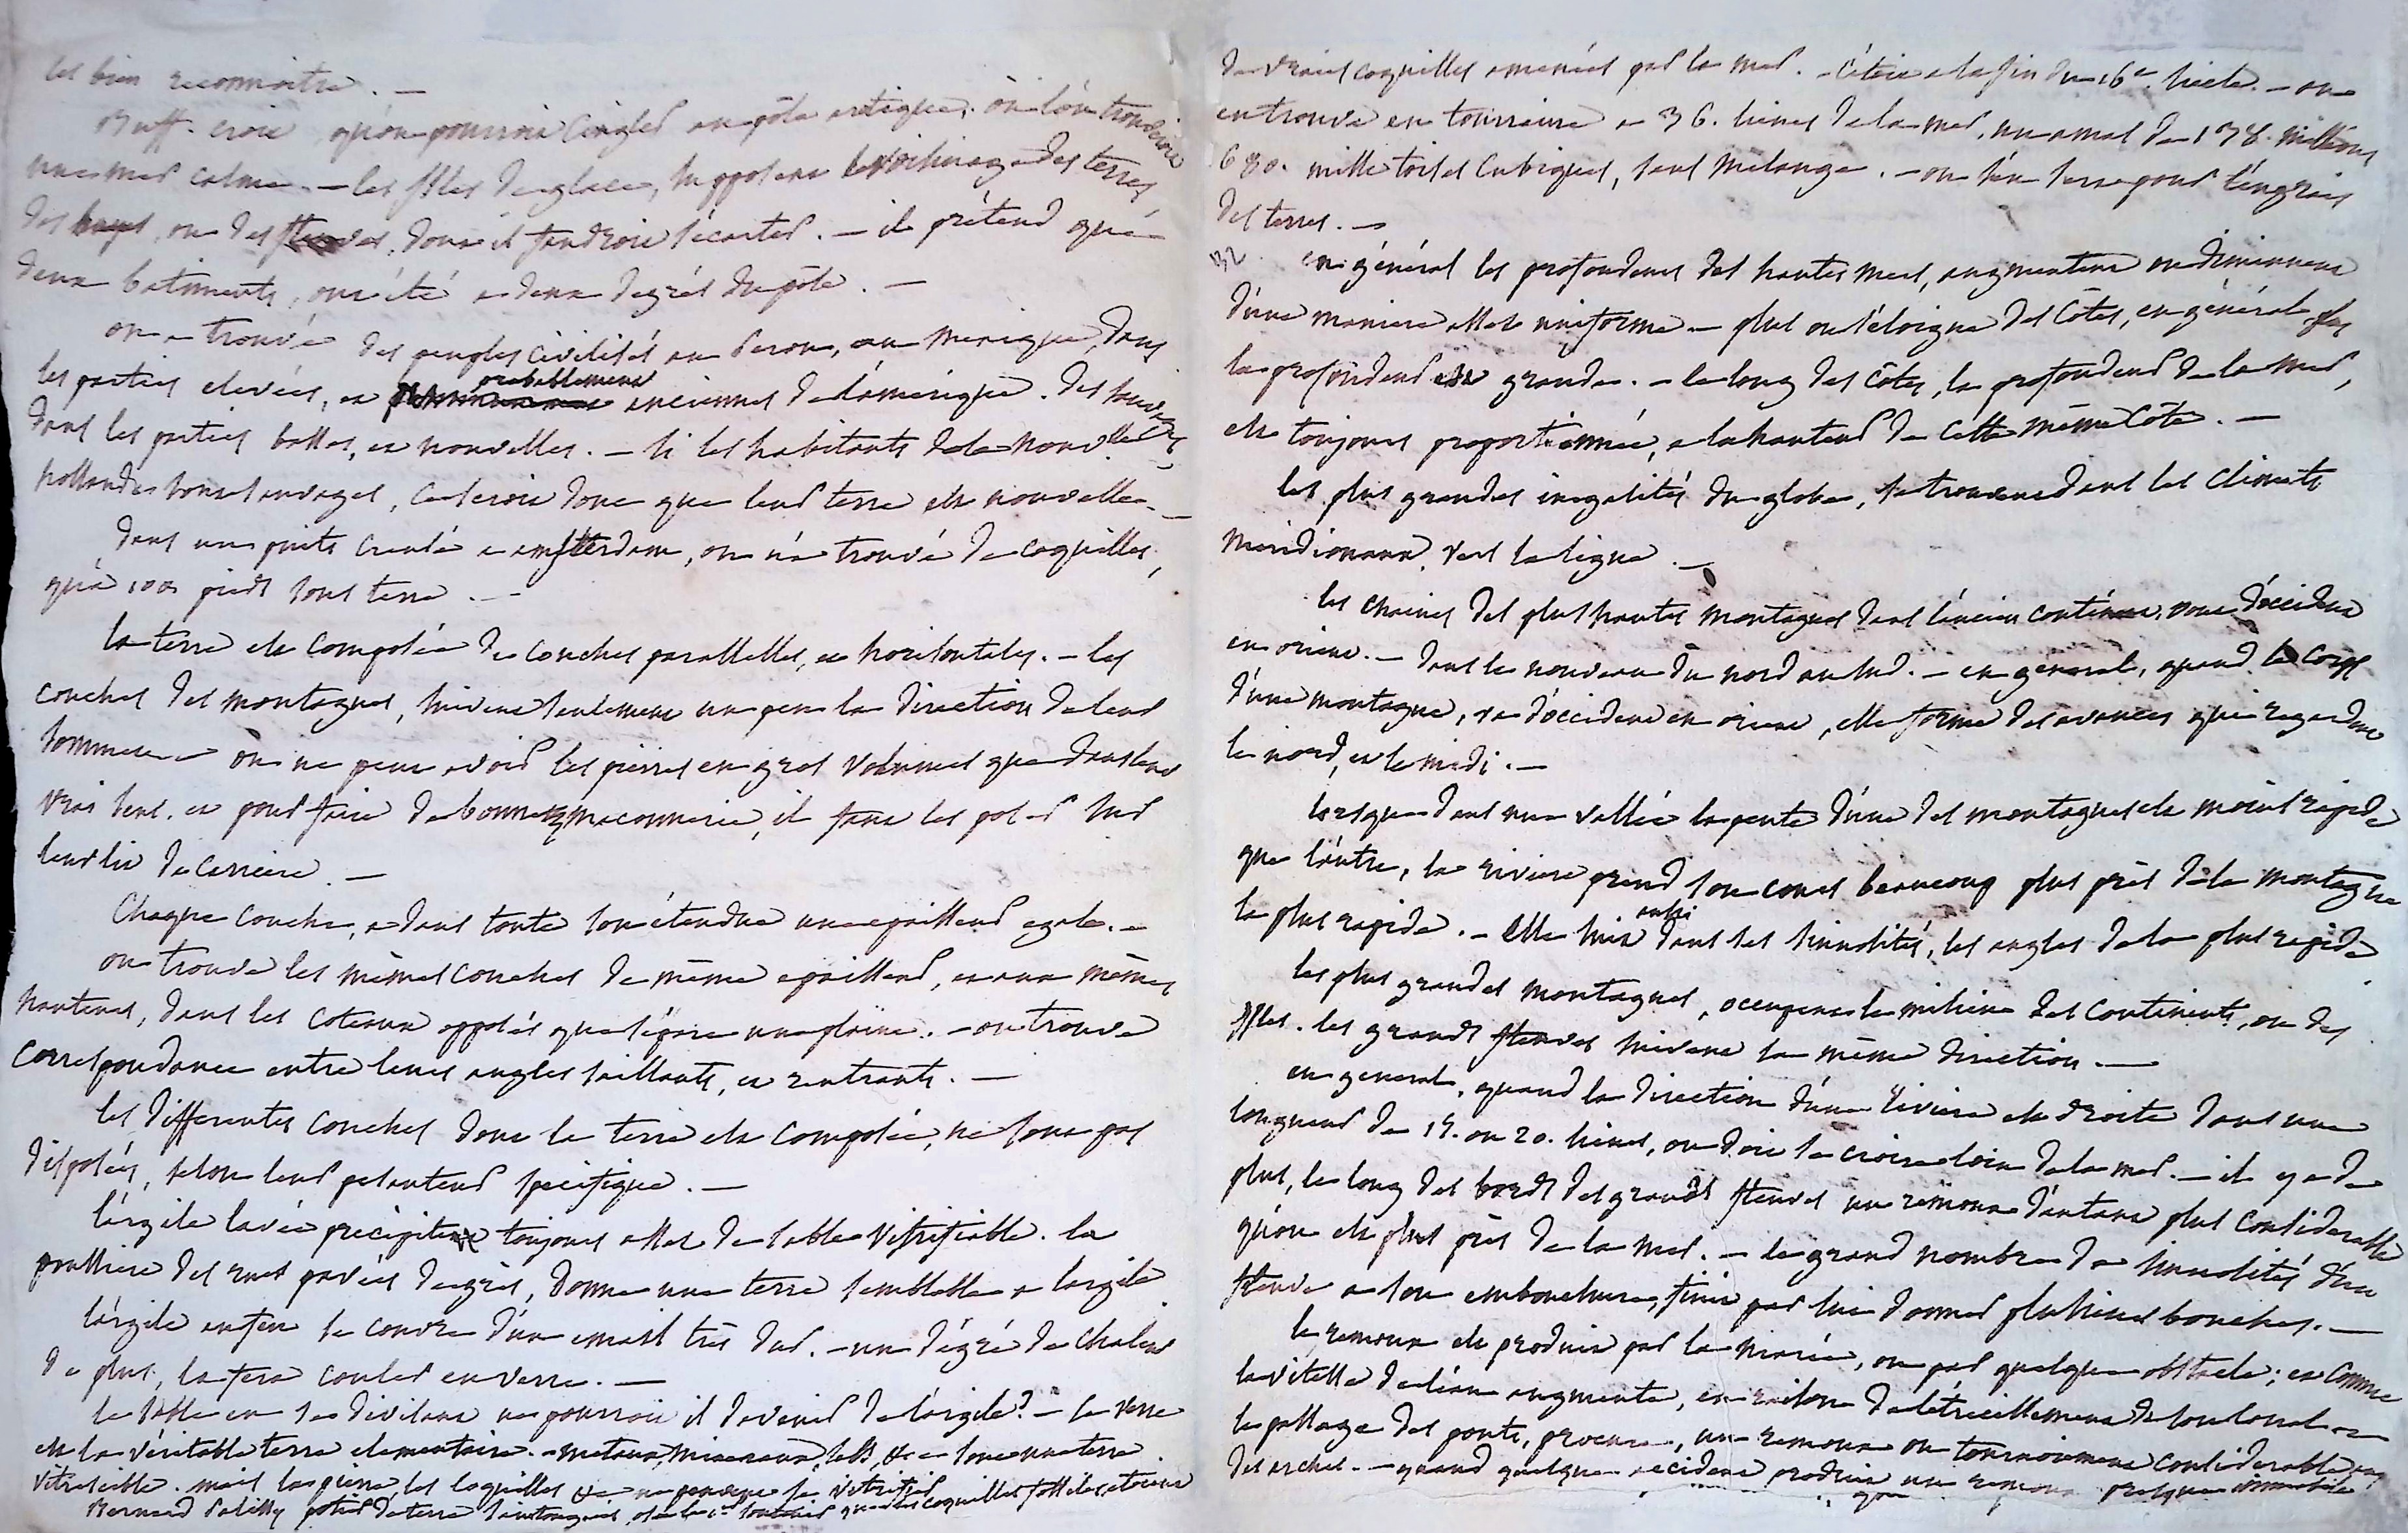 les bien reconnoître. —
Buff. croit qu'on pourroit cingler au pôle artique, où l'on trouveroit
une mer calme. — les isles de glace, supposent le voisinage des terres,
des bayes, ou des fleuves, dont il faudroit s'écarter. — il prétend que
deux batiments, ont été a deux degrés du pôle. —
on a trouvé des peuples civilisés au Perou, au Mexique, dans
les parties elevées, et probablement anciennes de l'amérique. des sauvages
dans les parties basses, et nouvelles. — si les habitants de la nouv.lle
hollande sont sauvages, ce seroit donc que leur terre est nouvelle. —
dans un puits creusé a amsterdam, on n'a trouvé de coquilles,
qu'à 100 pieds sous terre. —
la terre est composée de couches paralleles, et horisontales. — les
couches des montagnes, suivent seulement un peu la direction de leur
sommet — on ne peut avoir les pierres en gros volumes que dans leur
vrai sens. et pour faire de bonne maconnerie, il faut les poser sur
leur lit de carriere. —
Chaque couche, a dans toute son étendue une epaisseur egale. —
on trouve les mêmes couches de même epaisseur, et aux mêmes
hauteurs, dans les coteaux opposés que sépare une plaine. — on trouve
correspondance entre leurs angles saillants, et rentrants. —
les differentes couches dont la terre est composée, ne sont pas
disposées, selon leur pesanteur spécifique. —
l'argile lavée précipite toujours assez de sable vitrifiable. la
poussiere des rues pavées de grès, donne une terre semblable a l'argile
l'argile au feu se couvre d'un email très dur. — un dégré de chaleur
de plus, la fera couler en verre. —
le sable en se divisant ne pourroit il devenir de l'argile? — le verre
est la véritable terre elementaire. — metaux, mineraux, sels, &c sont une terre
vitrescible. mais la pierre, les coquilles &c ne peuvent se vitrifier
Bernard Palissy potier de terre saintongeois, osa le 1er soutenir que les coquilles fossiles, etoient
de vraies coquilles amenées par la mer. — c'étoit a la fin du 16e. siecle. — on
en trouve en tourraine a 36. lieues de la mer, un amas de 138. millions
680. mille toises cubiques, sans mélange. — on s'en sert pour l'engrais
des terres. —
en général les profondeurs des hautes mers, augmentent ou diminuent
d'une maniere assez uniforme — plus on s'éloigne des côtes, en général plus
la profondeur est grande. — le long des côtes, la profondeur de la mer,
est toujours proportionnée, a la hauteur de cette même côte. —
les plus grandes inegalités du globe, se trouvent dans les climats
méridionaux, vers la ligne. —
les chaines des plus hautes montagnes dans l'ancien continent, vont d'occident
en orient. — dans le nouveau du nord au sud. — en general, quand le corps
d'une montagne, va d'occident en orient, elle forme des avances qui regardent
le nord, et le midi. —
lorsque dans une vallée la pente d'une des montagnes est moins rapide
que l'autre, la riviere prend son cours beaucoup plus près de la montagne
la plus rapide. — elle suit aussi dans ses sinuosités, les angles de la plus rapide
les plus grandes montagnes, occupent le milieu des continents, ou des
isles. les grands fleuves suivent la même direction. —
en general, quand la direction d'une riviere est droite dans une
longueur de 15. ou 20. lieues, on doit se croire loin de la mer. — il y a de
plus, le long des bords des grands fleuves un remoux d'autant plus considerable
qu'on est plus près de la mer. — le grand nombre de sinuosités d'un
fleuve a son embouchure, finit par lui donner plusieurs bouches. —
le remoux est produit par la marée, ou par quelque obstacle; et comme
la vitesse de l'eau augmente, en raison de l'étrecissement de son canal —
le passage des ponts, procure, un remoux ou tournoiement considerable
des arches. — quand quelque accident produit un remoux presque immobile